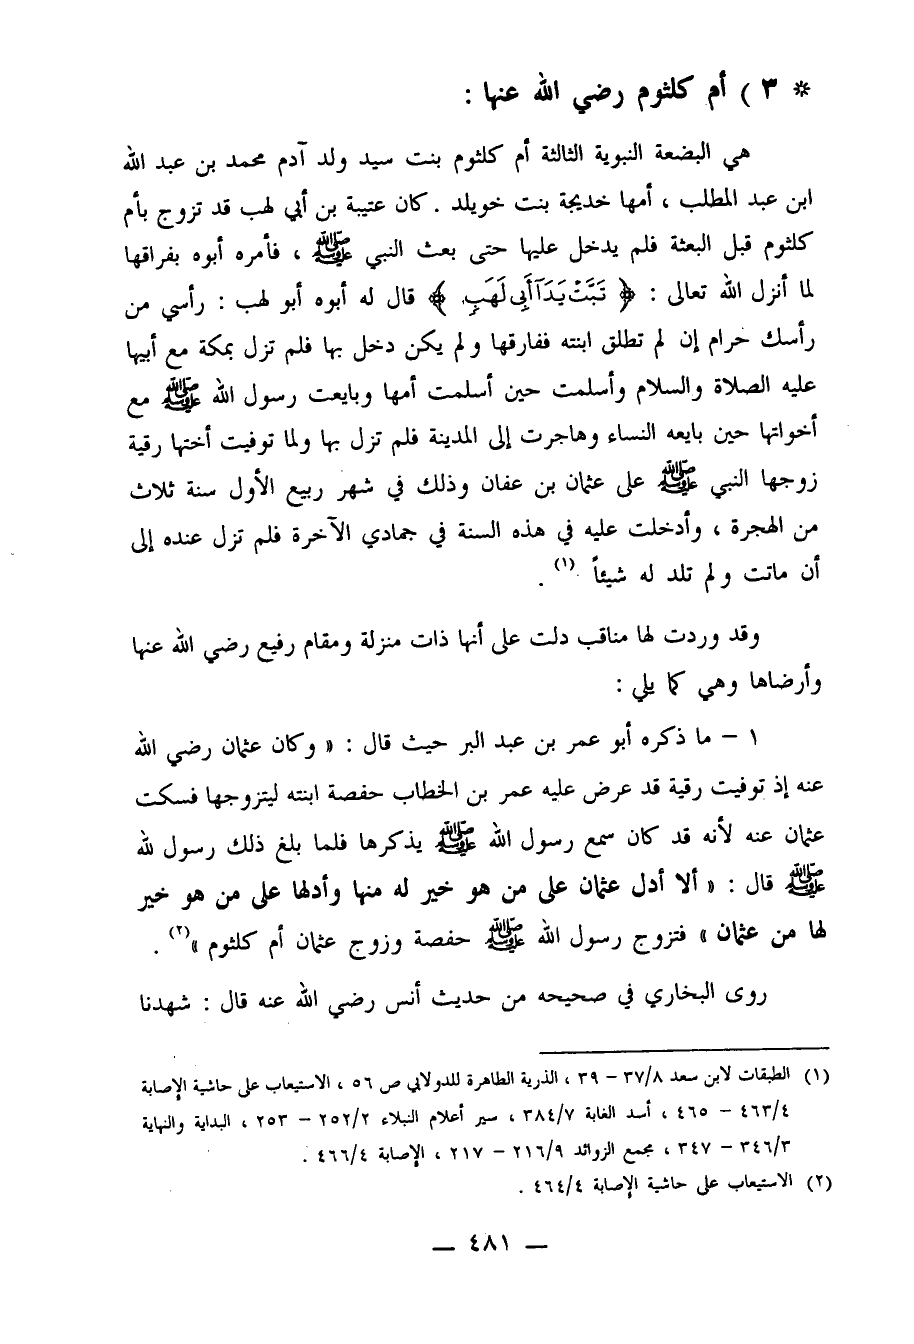 * ٣ ) أم كلثوم رضي الله عنها :
هي البضعة النبوية الثالثة أم كلثوم بنت سيد ولد آدم محمد بن عبد الله
ابن عبد المطلب ، أمها خديجة بنت خويلد . كان عتيبة بن أبي لهب قد تزوج بأم
كلثوم قبل البعثة فلم يدخل عليها حتى بعث النبي ﷺ ، فأمره أبوه بفراقها
لما أنزل الله تعالى : ﴿ تَبَّتْ يَدَآ أَبِى لَهَبٍ ﴾ قال له أبوه أبو لهب : رأسي من
رأسك حرام إن لم تطلق ابنته ففارقها ولم يكن دخل بها فلم تزل بمكة مع أبيها
عليه الصلاة والسلام وأسلمت حين أسلمت أمها وبايعت رسول الله ﷺ مع
أخواتها حين بايعه النساء وهاجرت إلى المدينة فلم تزل بها ولما توفيت أختها رقية
زوجها النبي ﷺ على عثمان بن عفان وذلك في شهر ربيع الأول سنة ثلاث
من الهجرة ، وأدخلت عليه في هذه السنة في جمادي الآخرة فلم تزل عنده إلى
أن ماتت ولم تلد له شيئاً (١) .
وقد وردت لها مناقب دلت على أنها ذات منزلة ومقام رفيع رضي الله عنها
وأرضاها وهي كما يلي :
١ – ما ذكره أبو عمر بن عبد البر حيث قال : « وكان عثمان رضي الله
عنه إذ توفيت رقية قد عرض عليه عمر بن الخطاب حفصة ابنته ليتزوجها فسكت
عثمان عنه لأنه قد كان سمع رسول الله ﷺ يذكرها فلما بلغ ذلك رسول لله
ﷺ قال : « ألا أدل عثمان على من هو خير له منها وأدلها على من هو خير
لها من عثمان » فتزوج رسول الله ﷺ حفصة وزوج عثمان أم كلثوم »(٢) .
روى البخاري في صحيحه من حديث أنس رضي الله عنه قال : شهدنا
(١) الطبقات لابن سعد ٣٧/٨ – ٣٩ ، الذرية الطاهرة للدولابي ص ٥٦ ، الاستيعاب على حاشية الإصابة
٤٦٣/٤ – ٤٦٥ ، أسد الغابة ٣٨٤/٧ ، سير أعلام النبلاء ٢٥٢/٢ – ٢٥٣ ، البداية والنهاية
٣٤٦/٣ – ٣٤٧ ، مجمع الزوائد ٢١٦/٩ – ٢١٧ ، الإصابة ٤٦٦/٤ .
(٢) الاستيعاب على حاشية الإصابة ٤٦٤/٤ .
— ٤٨١ —